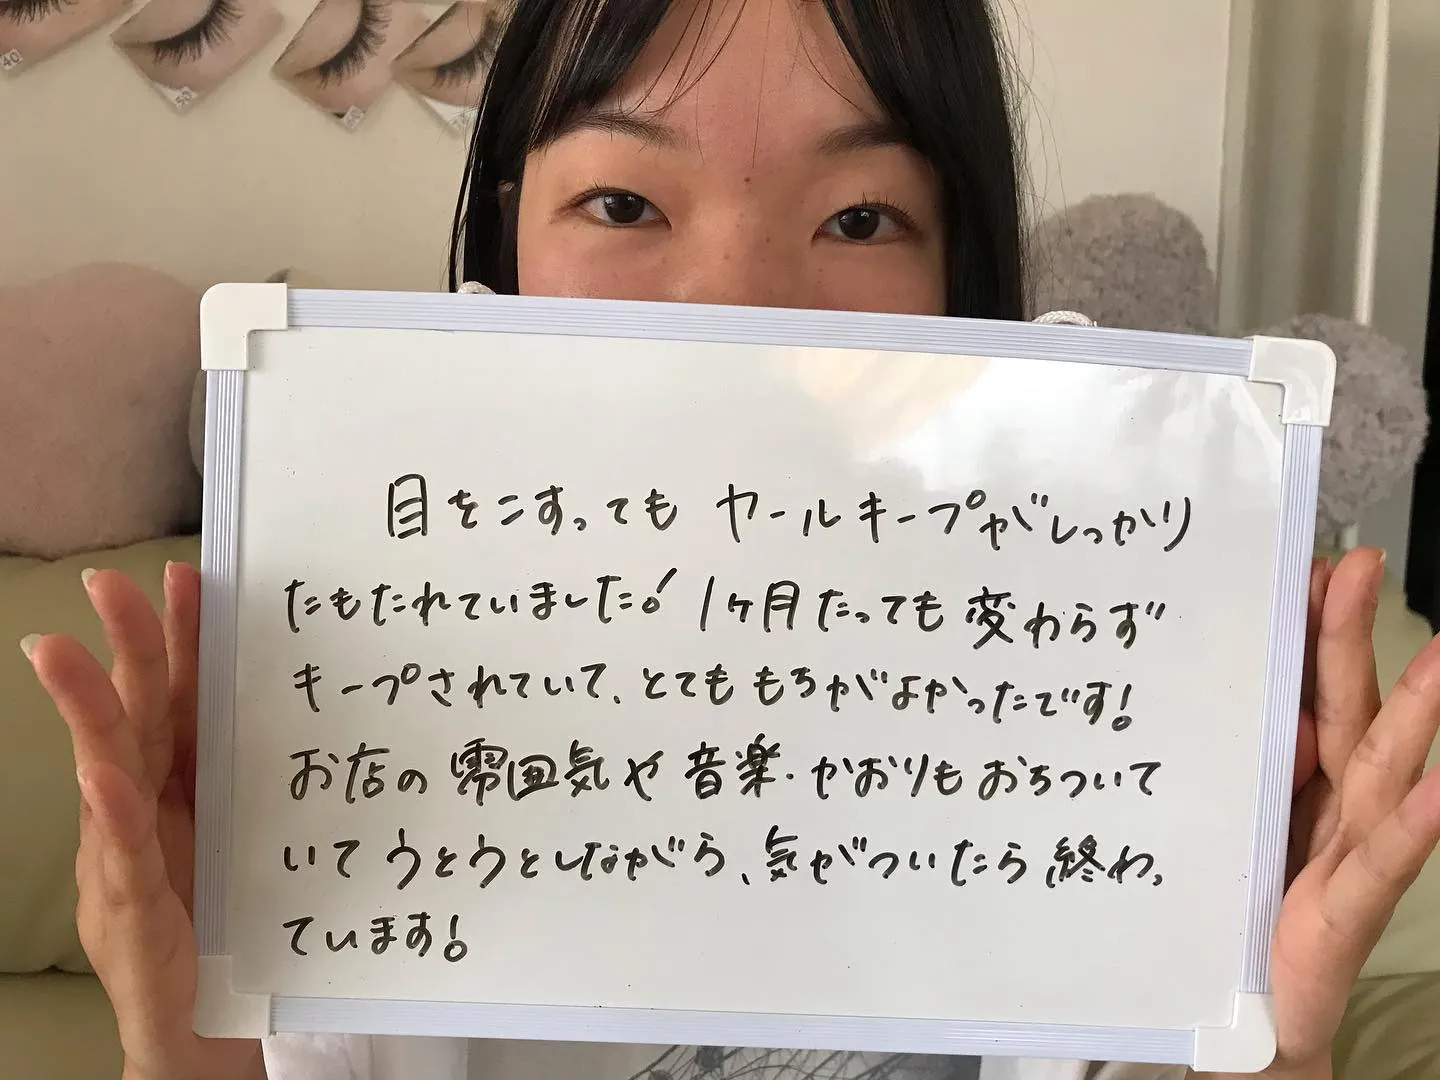 40
目をこすっても カールキープがしっかり
たもたれていました! 1ヶ月たっても変わらず
キープされていて、とてももちがよかったです!
お店の雰囲気や音楽・かおりもおちついて
いてうとうとしながら、気がついたら終わっ
ています!